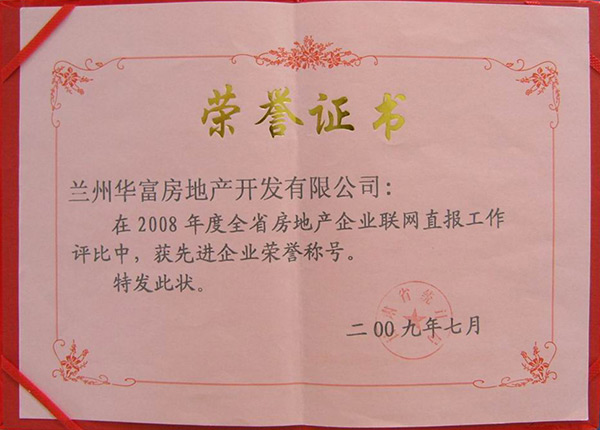 荣誉证书
兰州华富房地产开发有限公司：
在2008年度全省房地产企业联网直报工作
评比中，获先进企业荣誉称号。
特发此状。
二00九年七月